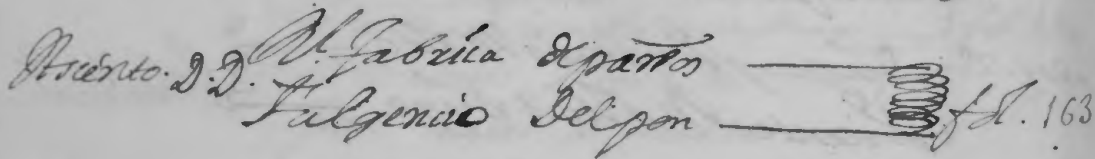 Asiento. D. D. Rl. fabrica de paños
Fulgencio Delpon fol. 163